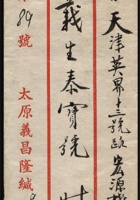 天津英界十三號路宏源
義生泰寶號
第89號
太原義昌隆緘